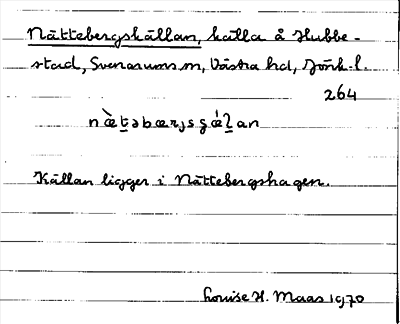 Nättebergskällan, källa å Hubbe-
stad, Svenarums sn, Västra hd, Jönk. l.
264
Källan ligger i Nättebergshagen.
Louise H. Maas 1970